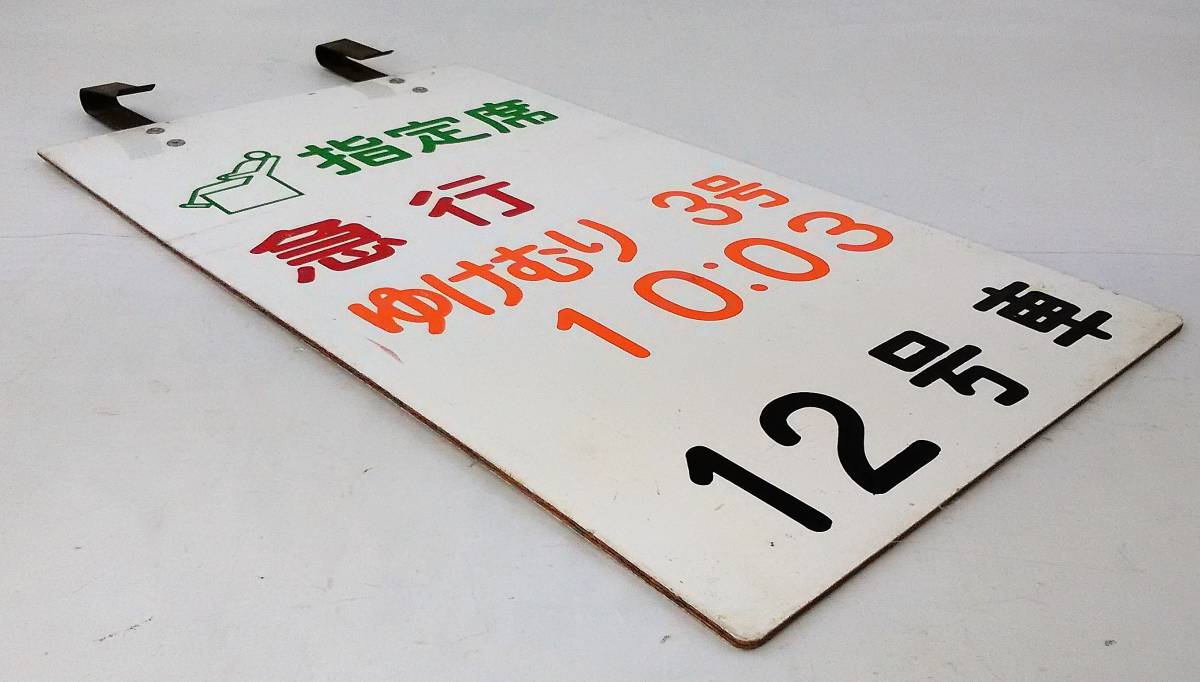 指定席
急行
ゆけむり 3号
10:03
12号車